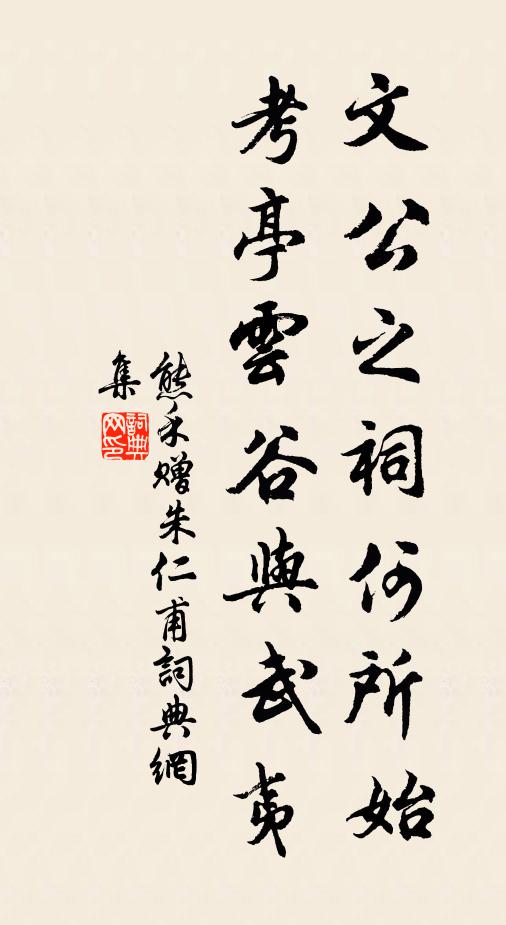 文公之祠何所始
考亭雲谷與武夷
熊禾贈朱仁甫詞典網
集
詞典
网印